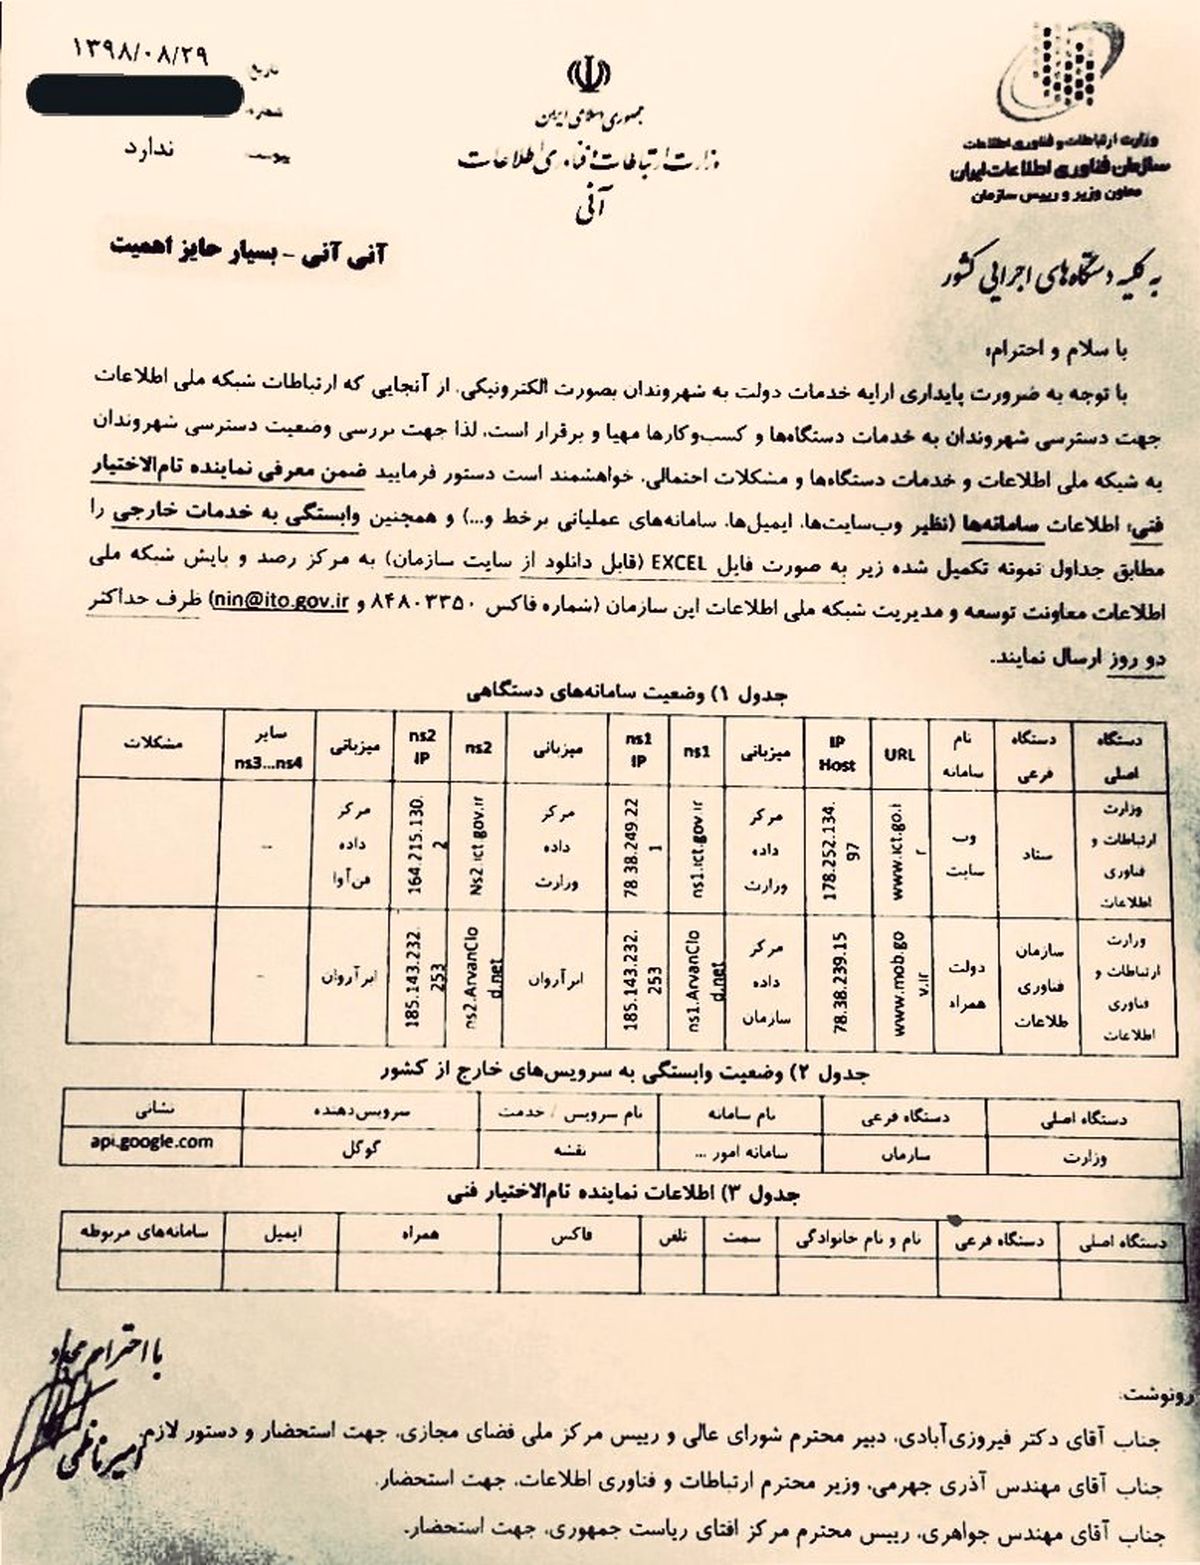 ۱۳۹۸/۰۸/۲۹
تاریخ
شماره
پیوست
ندارد
جمهوری اسلامی ایران
وزارت ارتباطات و فناوری اطلاعات
آنی
وزارت ارتباطات و فناوری اطلاعات
سازمان فناوری اطلاعات ایران
معاون وزیر و رییس سازمان
آنی آنی - بسیار حایز اهمیت
به کلیه دستگاه‌های اجرایی کشور
با سلام و احترام؛
با توجه به ضرورت پایداری ارایه خدمات دولت به شهروندان بصورت الکترونیکی، از آنجایی که ارتباطات شبکه ملی اطلاعات
جهت دسترسی شهروندان به خدمات دستگاه‌ها و کسب‌وکارها مهیا و برقرار است، لذا جهت بررسی وضعیت دسترسی شهروندان
به شبکه ملی اطلاعات و خدمات دستگاه‌ها و مشکلات احتمالی، خواهشمند است دستور فرمایید ضمن معرفی نماینده تام‌الاختیار
فنی؛ اطلاعات سامانه‌ها (نظیر وب‌سایت‌ها، ایمیل‌ها، سامانه‌های عملیاتی برخط و...) و همچنین وابستگی به خدمات خارجی را
مطابق جداول نمونه تکمیل شده زیر به صورت فایل EXCEL (قابل دانلود از سایت سازمان) به مرکز رصد و پایش شبکه ملی
اطلاعات معاونت توسعه و مدیریت شبکه ملی اطلاعات این سازمان (شماره فاکس ۸۴۸۰۳۳۵۰ و nin@ito.gov.ir) ظرف حداکثر
دو روز ارسال نمایند.
جدول ۱) وضعیت سامانه‌های دستگاهی
دستگاه اصلی دستگاه فرعی نام سامانه URL IP Host میزبانی ns1 ns1 IP میزبانی ns2 ns2 IP میزبانی سایر ns3...ns4 مشکلات
وزارت ارتباطات و فناوری اطلاعات ستاد وب سایت www.ict.go.ir 178.252.134.97 مرکز داده وزارت ns1.ict.gov.ir 78.38.249.221 مرکز داده وزارت Ns2.ict.gov.ir 164.215.130.2 مرکز داده فن‌آوا --
وزارت ارتباطات و فناوری اطلاعات سازمان فناوری طلاعات دولت همراه www.mob.gov.ir 78.38.239.15 مرکز داده سازمان ns1.ArvanClod.net 185.143.232.253 ابر آروان ns2.ArvanClod.net 185.143.232.253 ابر آروان --
جدول ۲) وضعیت وابستگی به سرویس‌های خارج از کشور
دستگاه اصلی دستگاه فرعی نام سامانه نام سرویس / خدمت سرویس‌دهنده نشانی
وزارت سازمان سامانه امور ... نقشه گوگل api.google.com
جدول ۳) اطلاعات نماینده تام‌الاختیار فنی
دستگاه اصلی دستگاه فرعی نام و نام خانوادگی سمت تلفن فاکس همراه ایمیل سامانه‌های مربوطه
با احترام مجدد
امیر ناظمی
رونوشت:
جناب آقای دکتر فیروزی‌آبادی، دبیر محترم شورای عالی و رییس مرکز ملی فضای مجازی، جهت استحضار و دستور لازم.
جناب آقای مهندس آذری جهرمی، وزیر محترم ارتباطات و فناوری اطلاعات، جهت استحضار.
جناب آقای مهندس جواهری، رییس محترم مرکز افتای ریاست جمهوری، جهت استحضار.